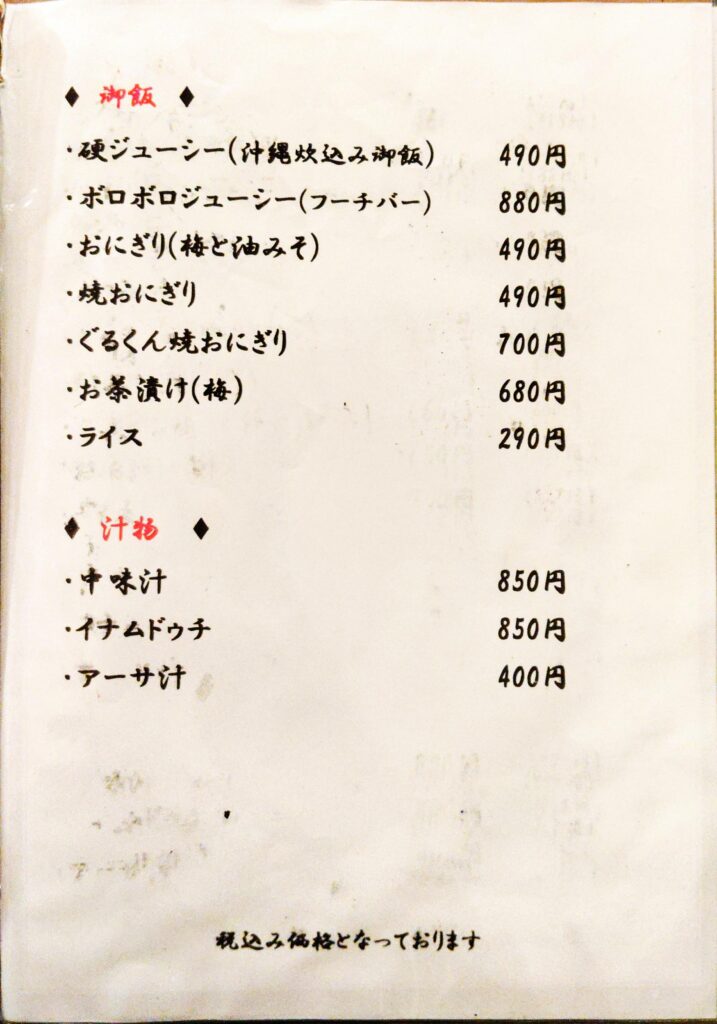 ♦ 御飯 ♦
・硬ジューシー(沖縄炊込み御飯) 490円
・ボロボロジューシー(フーチバー) 880円
・おにぎり(梅と油みそ) 490円
・焼おにぎり 490円
・ぐるくん焼おにぎり 700円
・お茶漬け(梅) 680円
・ライス 290円
♦ 汁物 ♦
・中味汁 850円
・イナムドゥチ 850円
・アーサ汁 400円
税込み価格となっております